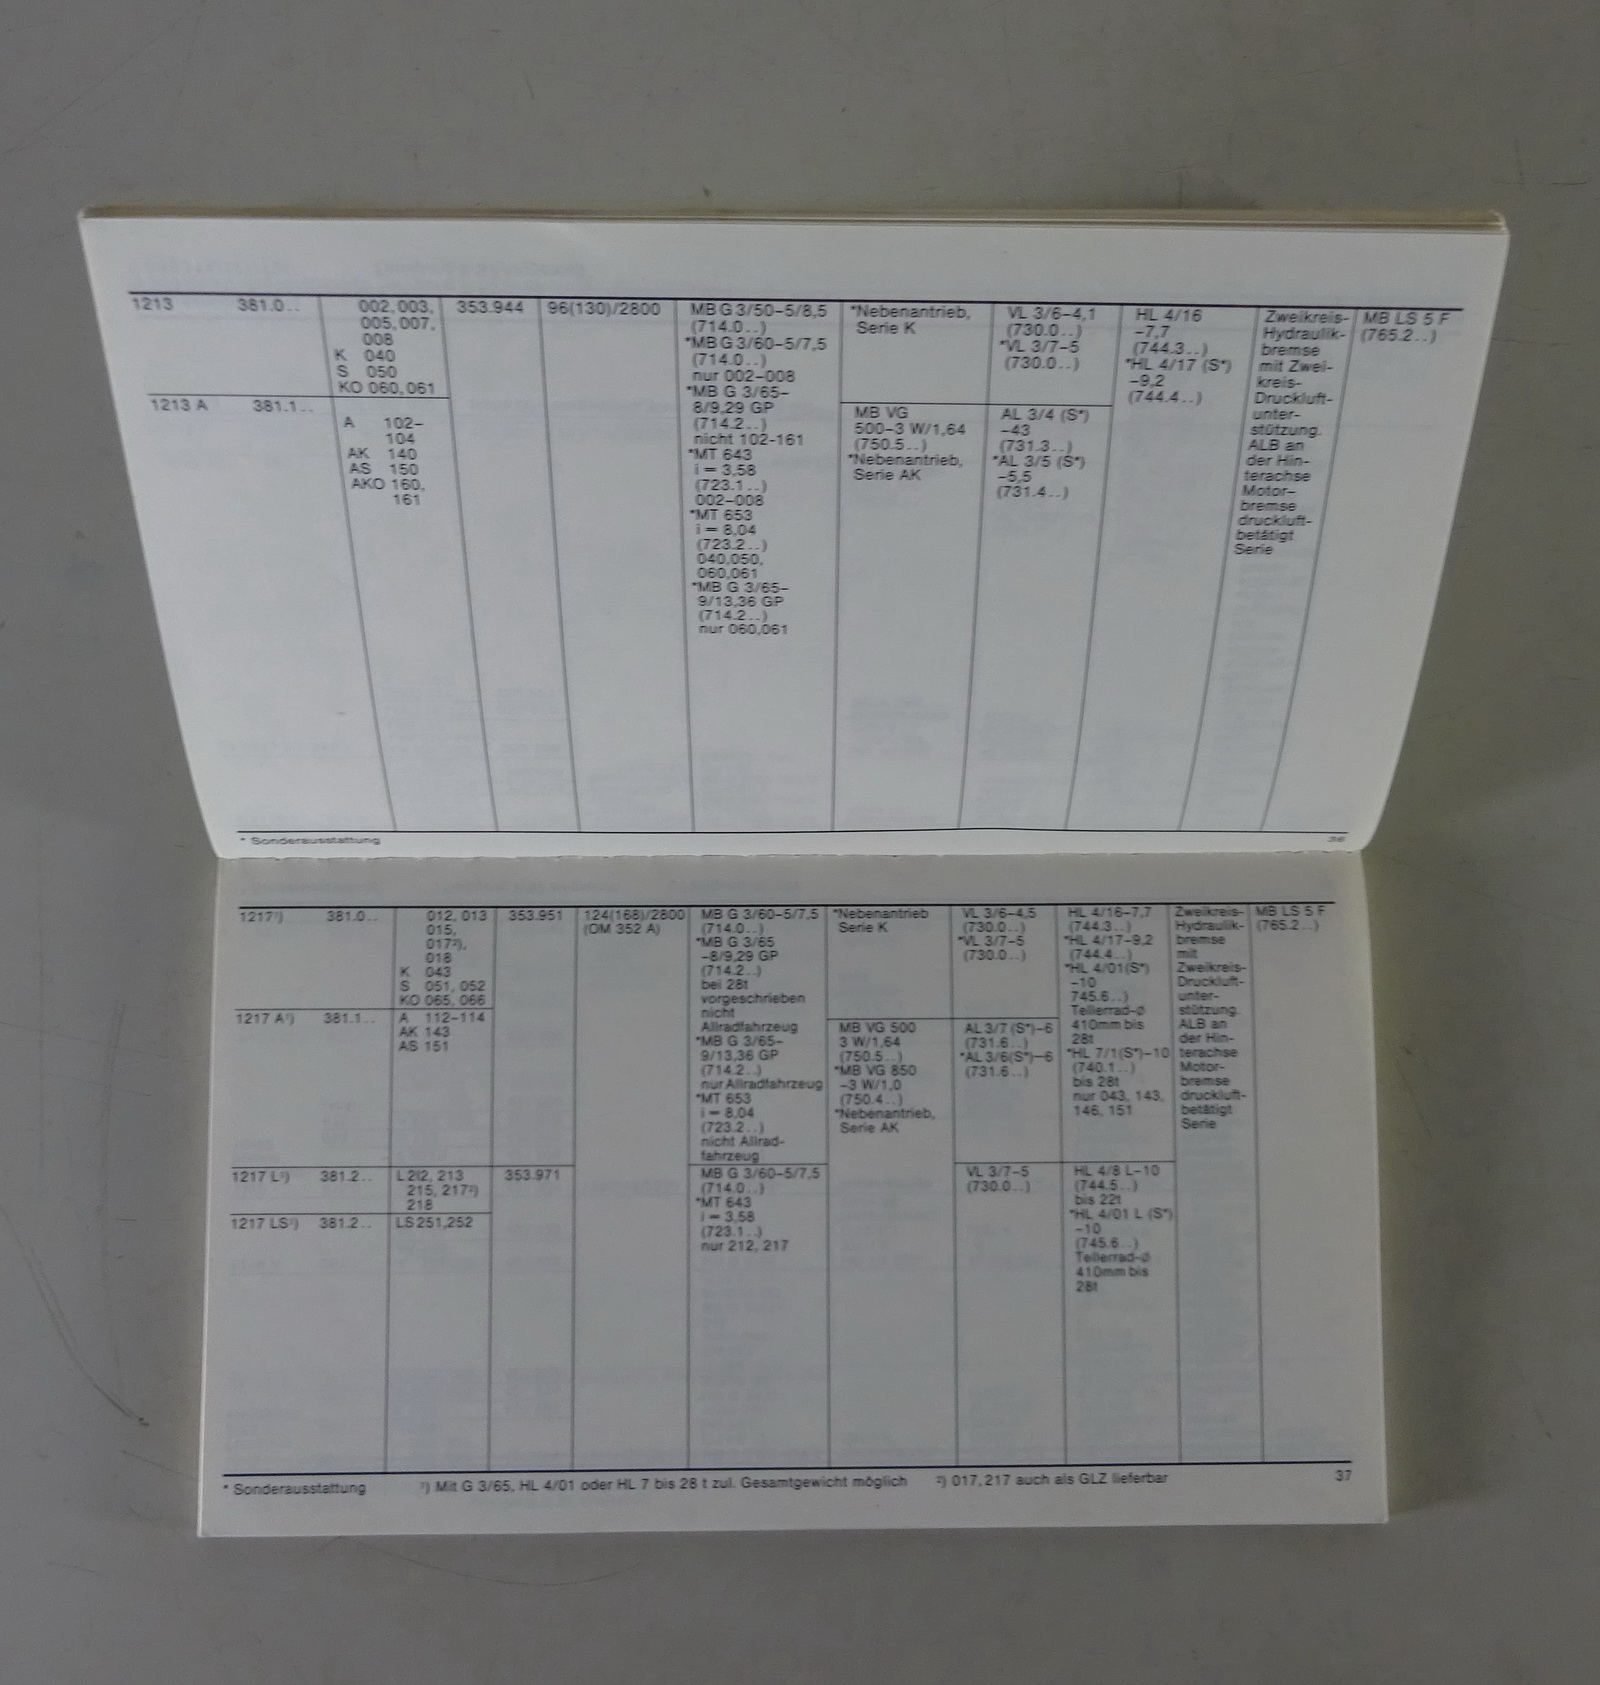 1213 381.0.. 002,003, 353.944 96(130)/2800 MB G 3/50–5/8,5 *Nebenantrieb, VL 3/6–4,1 HL 4/16 Zweikreis- MB LS 5 F
005,007, (714.0..) Serie K (730.0..) –7,7 Hydraulik- (765.2..)
008 *MB G 3/60–5/7,5 *VL 3/7–5 (744.3..) bremse
K 040 (714.0..) (730.0..) *HL 4/17 (S*) mit Zwei-
S 050 nur 002–008 –9,2 kreis-
KO 060,061 *MB G 3/65– (744.4..) Druckluft-
1213 A 381.1.. 8/9,29 GP MB VG AL 3/4 (S*) unter-
A 102– (714.2..) 500–3 W/1,64 –43 stützung.
104 nicht 102-161 (750.5..) (731.3..) ALB an
AK 140 *MT 643 *Nebenantrieb, *AL 3/5 (S*) der Hin-
AS 150 i = 3,58 Serie AK –5,5 terachse
AKO 160, (723.1..) (731.4..) Motor–
161 002–008 bremse
*MT 653 druckluft-
i = 8,04 betätigt
(723.2..) Serie
040,050,
060,061
*MB G 3/65–
9/13,36 GP
(714.2..)
nur 060,061
* Sonderausstattung 36
1217¹) 381.0.. 012, 013 353.951 124(168)/2800 MB G 3/60–5/7,5 *Nebenantrieb VL 3/6–4,5 HL 4/16–7,7 Zweikreis- MB LS 5 F
015, (OM 352 A) (714.0..) Serie K (730.0..) (744.3..) Hydraulik- (765.2..)
017²), *MB G 3/65 *VL 3/7–5 *HL 4/17–9,2 bremse
018 –8/9,29 GP (730.0..) (744.4..) mit
K 043 (714.2..) *HL 4/01(S*) Zweikreis-
S 051, 052 bei 28t –10 Druckluft-
KO 065, 066 vorgeschrieben 745.6..) unter-
1217 A¹) 381.1.. A 112–114 nicht Tellerrad-ø stützung.
AK 143 Allradfahrzeug MB VG 500 AL 3/7 (S*)–6 410mm bis ALB an
AS 151 *MB G 3/65– 3 W/1,64 (731.6..) 28t der Hin-
9/13,36 GP (750.5..) *AL 3/6(S*)–6 *HL 7/1(S*)–10 terachse
(714.2..) *MB VG 850 (731.6..) (740.1..) Motor–
nur Allradfahrzeug –3 W/1,0 bis 28t bremse
*MT 653 (750.4..) nur 043, 143, druckluft-
i = 8,04 *Nebenantrieb, 146, 151 betätigt
(723.2..) Serie AK Serie
nicht Allrad-
fahrzeug
1217 L¹) 381.2.. L 212, 213 353.971 MB G 3/60–5/7,5 VL 3/7–5 HL 4/8 L–10
215, 217²) (714.0..) (730.0..) (744.5..)
218 *MT 643 bis 22t
1217 LS¹) 381.2.. LS 251,252 i = 3,58 *HL 4/01 L (S*)
(723.1..) –10
nur 212, 217 (745.6..)
Tellerrad-ø
410mm bis
28t
* Sonderausstattung ¹) Mit G 3/65, HL 4/01 oder HL 7 bis 28 t zul. Gesamtgewicht möglich ²) 017, 217 auch als GLZ lieferbar 37